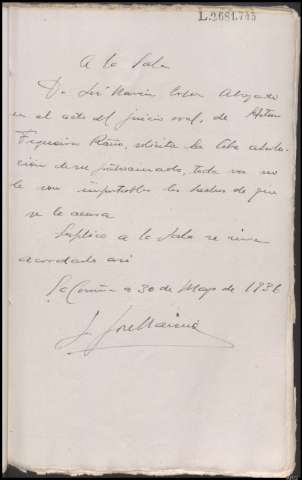 L.2681.755
A la Sala
D. José Marin Abogado
en el acto del juicio oral, de
Figueira Raño, solicita la libre absolu-
ción de su patrocinado, toda vez no
le son imputables los hechos de que
se le acusa
Suplico a la Sala se sirva
acordarlo así
La Coruña a 30 de Mayo de 193